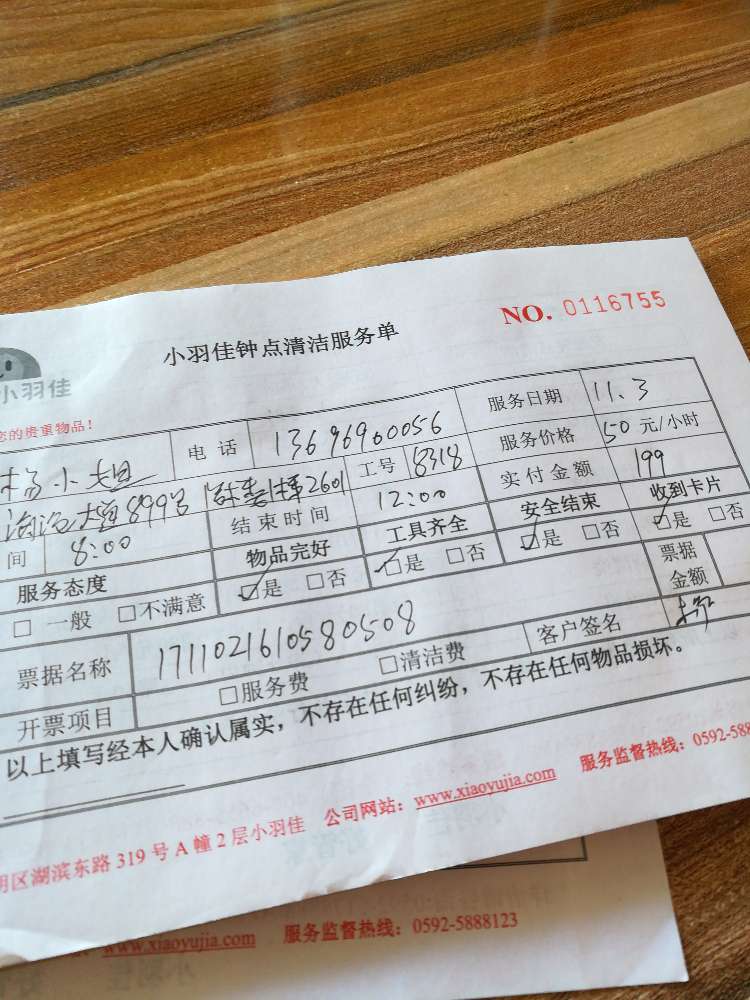 NO. 0116755
小羽佳钟点清洁服务单
小羽佳
您的贵重物品!
杨小姐 电话 13696900056 服务日期 11.3
899号 2601 工号 8318 服务价格 50 元/小时
间 8:00 结束时间 12:00 实付金额 199
服务态度 物品完好 工具齐全 安全结束 收到卡片
□ 一般 □不满意 ☑是 □否 ☑是 □否 ☑是 □否 ☑是 □否
票据名称 1711021610580508 票据金额
开票项目 □服务费 □清洁费 客户签名
以上填写经本人确认属实,不存在任何纠纷,不存在任何物品损坏。
明区湖滨东路 319 号 A 幢 2 层小羽佳 公司网站:www.xiaoyujia.com 服务监督热线:0592-588
www.xiaoyujia.com 服务监督热线:0592-5888123